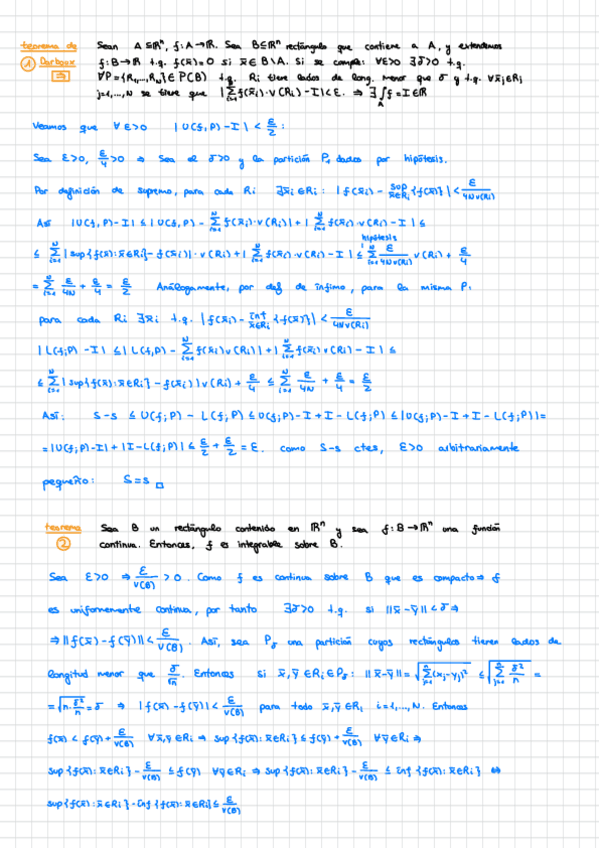 teorema de Sean A⊆ℝⁿ, f:A→ℝ. Sea B⊆ℝⁿ rectángulo que contiene a A, y extendemos
① Darboux f:B→ℝ t.q. f(x̄)=0 si x̄∈B\A. Si se cumple: ∀ε>0 ∃δ>0 t.q.
⇒ ∀P={R₁,...,R_N}∈P(B) t.q. Ri tiene lados de long. menor que δ y t.q. ∀x̄ⱼ∈Rⱼ
j=1,...,N se tiene que |∑ᵢ₌₁ᴺ f(x̄i)·v(Ri)-I|<ε. ⇒ ∃∫_A f=I∈ℝ
Veamos que ∀ε>0 |U(f,P)-I|<ε/2:
Sea ε>0, ε/4>0 ⇒ Sea el δ>0 y la partición P, dados por hipótesis.
Por definición de supremo, para cada Ri ∃x̄i∈Ri: |f(x̄i)-sup_{x̄∈Ri}{f(x̄)}|<ε/4Nv(Ri)
Así |U(f,P)-I|≤|U(f,P)-∑ᵢ₌₁ᴺ f(x̄i)·v(Ri)|+|∑ᵢ₌₁ᴺ f(x̄i)·v(Ri)-I|≤
hipótesis
≤∑ᵢ₌₁ᴺ|sup{f(x̄):x̄∈Ri}-f(x̄i)|·v(Ri)+|∑ᵢ₌₁ᴺ f(x̄i)·v(Ri)-I|≤∑ᵢ₌₁ᴺ ε/4Nv(Ri) v(Ri)+ε/4
=∑ᵢ₌₁ᴺ ε/4N+ε/4=ε/2 Análogamente, por def de ínfimo, para la misma P,
para cada Ri ∃x̄i t.q. |f(x̄i)-inf_{x̄∈Ri}{f(x̄)}|<ε/4Nv(Ri)
|L(f,P)-I|≤|L(f,P)-∑ᵢ₌₁ᴺ f(x̄i)v(Ri)|+|∑ᵢ₌₁ᴺ f(x̄i)v(Ri)-I|≤
≤∑ᵢ₌₁ᴺ|sup{f(x̄):x̄∈Ri}-f(x̄i)|v(Ri)+ε/4≤∑ᵢ₌₁ᴺ ε/4N+ε/4=ε/2
Así: S-s≤U(f,P)-L(f,P)≤U(f,P)-I+I-L(f,P)≤|U(f,P)-I+I-L(f,P)|=
=|U(f,P)-I|+|I-L(f,P)|≤ε/2+ε/2=ε. como S-s ctes, ε>0 arbitrariamente
pequeño: S=s □
teorema Sea B un rectángulo contenido en ℝⁿ y sea f:B→ℝⁿ una función
② continua. Entonces, f es integrable sobre B.
Sea ε>0 ⇒ ε/v(B)>0. Como f es continua sobre B que es compacto ⇒ f
es uniformemente continua, por tanto ∃δ>0 t.q. si ||x̄-ȳ||<δ ⇒
⇒||f(x̄)-f(ȳ)||<ε/v(B). Así, sea Pδ una partición cuyos rectángulos tienen lados de
longitud menor que δ/√n. Entonces si x̄,ȳ∈Ri∈Pδ: ||x̄-ȳ||=√(∑ⱼ₌₁ⁿ(xj-yj)²)≤√(∑ⱼ₌₁ⁿ δ²/n)=
=√(n·δ²/n)=δ ⇒ |f(x̄)-f(ȳ)|<ε/v(B) para todo x̄,ȳ∈Ri, i=1,...,N. Entonces
f(x̄)<f(ȳ)+ε/v(B) ∀x̄,ȳ∈Ri ⇒ sup{f(x̄):x̄∈Ri}≤f(ȳ)+ε/v(B) ∀ȳ∈Ri ⇒
sup{f(x̄):x̄∈Ri}-ε/v(B)≤f(ȳ) ∀ȳ∈Ri ⇒ sup{f(x̄):x̄∈Ri}-ε/v(B)≤inf{f(x̄):x̄∈Ri} ⇔
sup{f(x̄):x̄∈Ri}-inf{f(x̄):x̄∈Ri}≤ε/v(B)